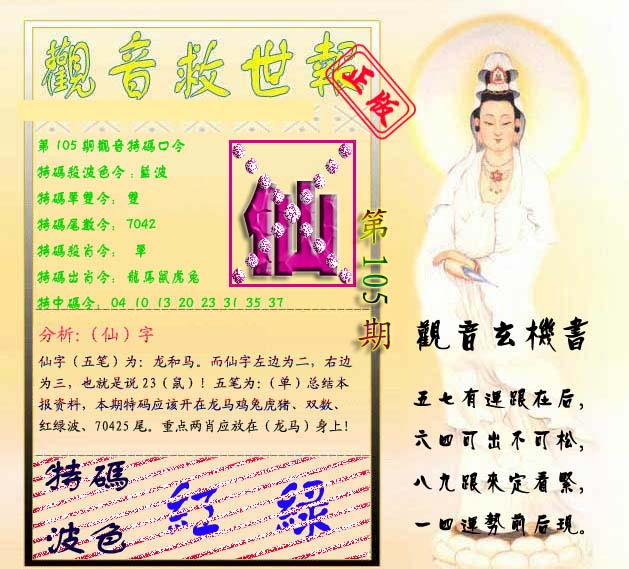 觀音救世報
正版
第105期觀音特碼口令
特碼殺波色令:藍波
特碼單雙令: 雙
特碼尾數令: 7042
特碼殺肖令: 單
特碼出肖令: 龍馬鼠虎兔
特中碼令: 04 10 13 20 23 31 35 37
仙
第105期
分析:（仙）字
仙字（五笔）为：龙和马。而仙字左边为二，右边
为三，也就是说23（鼠）！五笔为：（单）总结本
报资料，本期特码应该开在龙马鸡兔虎猪、双数、
红绿波、70425尾。重点两肖应放在（龙马）身上！
特碼
波色
紅 綠
觀音玄機書
五七有運跟在后，
六四可出不可松，
八九跟來定看緊，
一四運勢前后現。